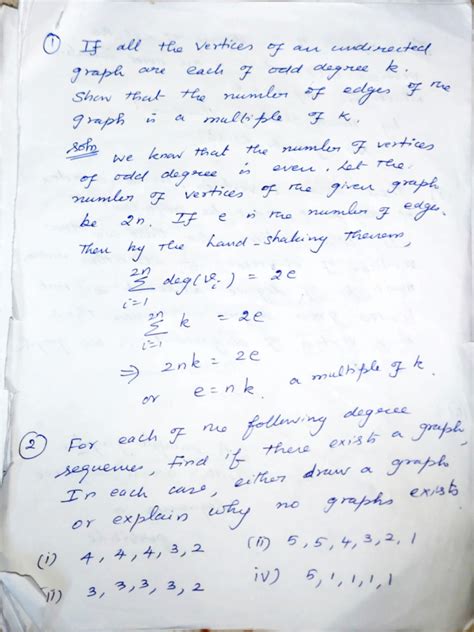 ① If all the vertices of an undirected
graph are each of odd degree k.
Show that the number of edges of the
graph is a multiple of k.
Soln We know that the number of vertices
of odd degree is even. Let the
number of vertices of the given graph
be 2n. If e is the number of edges.
Then by the hand-shaking theorem,
2n
∑ deg(vᵢ) = 2e
i=1
2n
∑ k = 2e
i=1
⇒ 2nk = 2e
or e = nk, a multiple of k.
② For each of the following degree
sequences, find if there exists a graph,
In each case, either draw a graph
or explain why no graphs exists
(i) 4, 4, 4, 3, 2 (ii) 5, 5, 4, 3, 2, 1
iii) 3, 3, 3, 3, 2 iv) 5, 1, 1, 1, 1